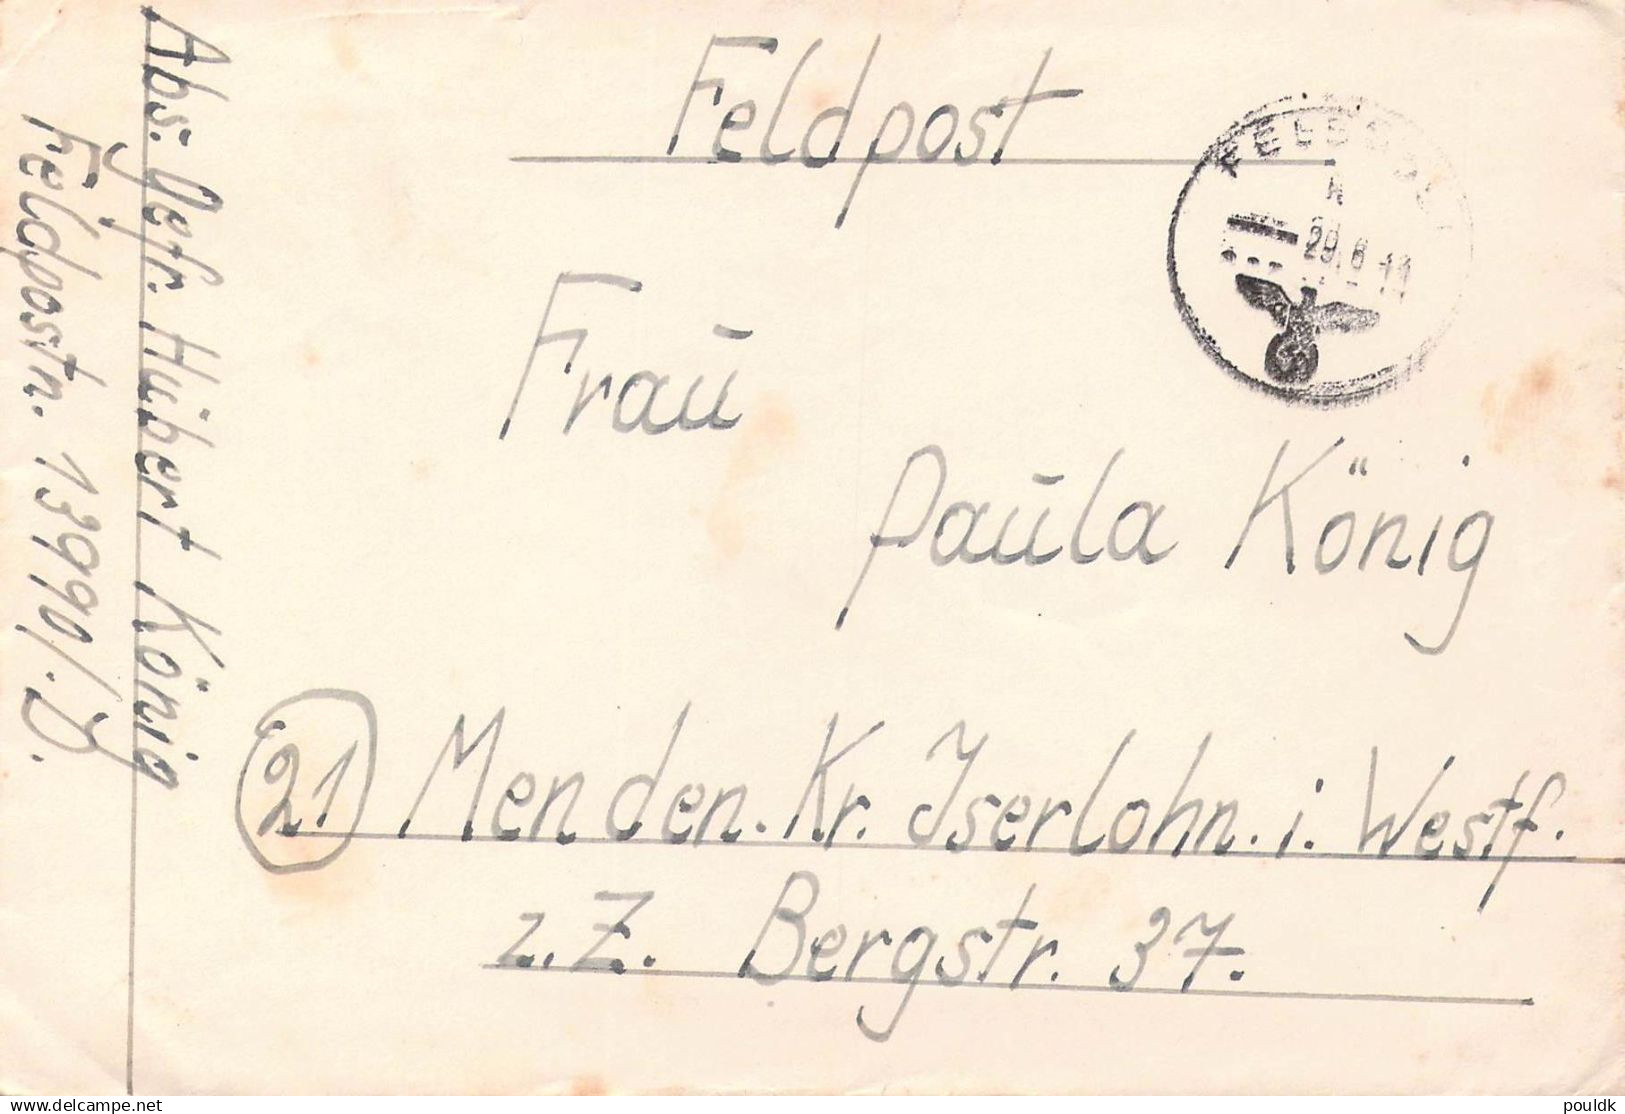 Feldpost
FELDPOST
29.6.44
Frau
Paula König
(21) Menden. Kr. Iserlohn. i. Westf.
z. Z. Bergstr. 37.
Abs: Gefr. Hubert König
Feldpostn. 13990/.D.
www.delcampe.net
pouldk